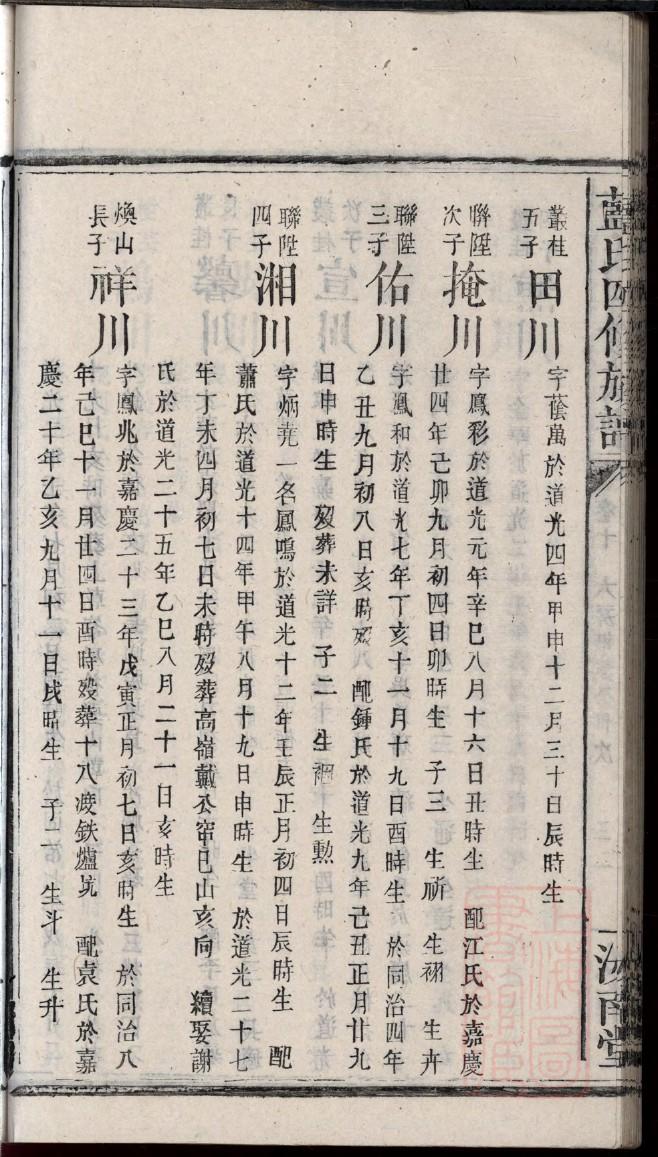 藍氏四修族譜
汝南堂
叢桂
五子
田川
字蔭萬於道光四年甲申十二月三十日辰時生
聯陞
次子
掩川
字鳳彩於道光元年辛巳八月十六日丑時生 配江氏於嘉慶
廿四年己卯九月初四日卯時生 子三 生祈 生祤 生卉
聯陞
三子
佑川
字鳳和於道光七年丁亥十一月十九日酉時生 於同治四年
乙丑九月初八日亥時歿 配鍾氏於道光九年己丑正月廿九
日申時生 歿葬未詳 子二 生禤 生勲
聯陞
四子
湘川
字炳堯一名鳳鳴於道光十二年壬辰正月初四日辰時生 配
蕭氏於道光十四年甲午八月十九日申時生 於道光二十七
年丁未四月初七日未時歿葬高嶺戴公窂巳山亥向 續娶謝
氏於道光二十五年乙巳八月二十一日亥時生
煥山
長子
祥川
字鳳兆於嘉慶二十三年戊寅正月初七日亥時生 於同治八
年己巳十一月廿四日酉時歿葬十八渡鉄爐坑 配袁氏於嘉
慶二十年乙亥九月十一日戌時生 子二 生斗 生升